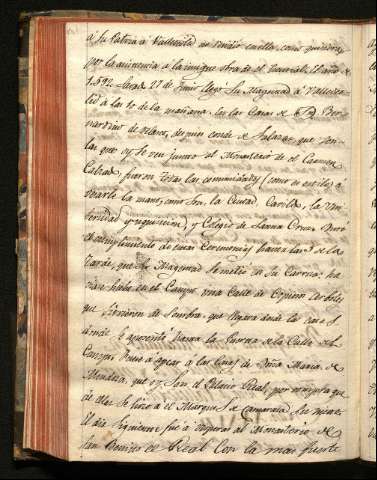 a su Patria a Valladolid no
por la asistencia a la insigne obra de el Escurial. El año de
1592. Savado 27 de Junio llego Su Magestad a Vallado-
lid a las 10 de la mañana, en las Casas de D. Ber-
nardino de Velasco, despues conde de Salazar que son
las que oy se ven junto al Monasterio de el Carmen
Calzado, fueron todas las comunidades (como es estilo) a
vesarle la mano, como son, la Ciudad, Cavildo, la Uni-
versidad y Inquisicion, y Colegio de Santa Cruz. Duro
el cumplimiento de estas Ceremonias hasta las 5 de la
tarde, que Su Magestad se metio en su Carroza; ha-
vian hecho en el Campo una Calle de espesos arboles
que sirviesen de sombra, que llegava desde las casas
donde se aposentó hasta la Puerta de la Calle de el
Campo: vino a apear a las Casas de Doña Maria de
Mendoza, que oy son el Palacio Real, por compra que
de ellas se hizo a el Marques de Camarasa su nieto.
El dia siguiente fue a Visperas al Monasterio de
San Benito el Real con la mas fuerte